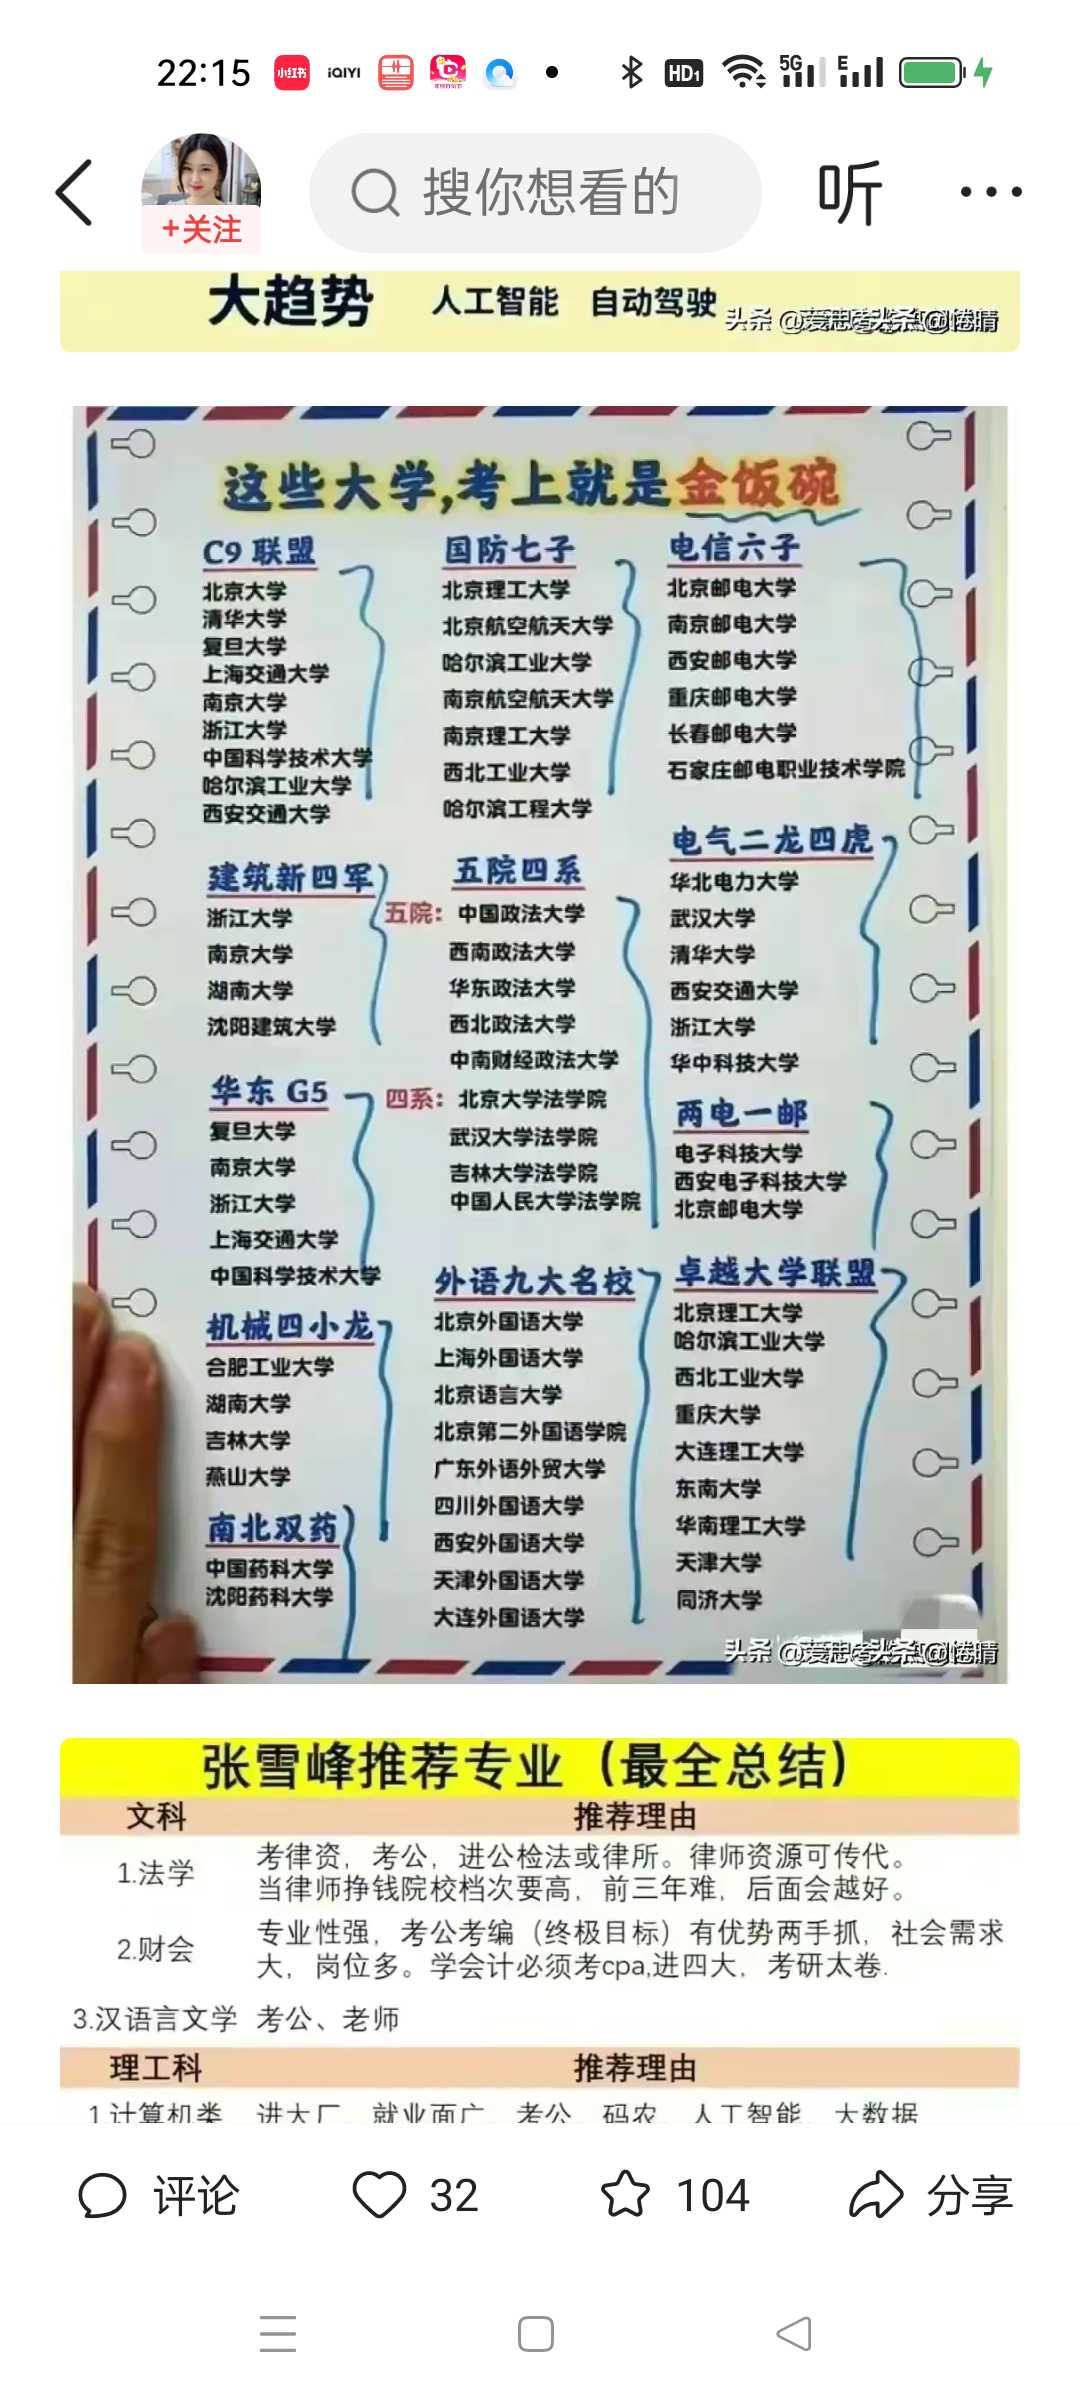 22:15
小红书
iQIYI
HD1
5G
E
+关注
搜你想看的
听
大趋势 人工智能 自动驾驶
这些大学,考上就是金饭碗
C9 联盟
北京大学
清华大学
复旦大学
上海交通大学
南京大学
浙江大学
中国科学技术大学
哈尔滨工业大学
西安交通大学
国防七子
北京理工大学
北京航空航天大学
哈尔滨工业大学
南京航空航天大学
南京理工大学
西北工业大学
哈尔滨工程大学
电信六子
北京邮电大学
南京邮电大学
西安邮电大学
重庆邮电大学
长春邮电大学
石家庄邮电职业技术学院
建筑新四军
浙江大学
南京大学
湖南大学
沈阳建筑大学
五院四系
五院：中国政法大学
西南政法大学
华东政法大学
西北政法大学
中南财经政法大学
四系：北京大学法学院
武汉大学法学院
吉林大学法学院
中国人民大学法学院
电气二龙四虎
华北电力大学
武汉大学
清华大学
西安交通大学
浙江大学
华中科技大学
华东 G5
复旦大学
南京大学
浙江大学
上海交通大学
中国科学技术大学
两电一邮
电子科技大学
西安电子科技大学
北京邮电大学
机械四小龙
合肥工业大学
湖南大学
吉林大学
燕山大学
外语九大名校
北京外国语大学
上海外国语大学
北京语言大学
北京第二外国语学院
广东外语外贸大学
四川外国语大学
西安外国语大学
天津外国语大学
大连外国语大学
卓越大学联盟
北京理工大学
哈尔滨工业大学
西北工业大学
重庆大学
大连理工大学
东南大学
华南理工大学
天津大学
同济大学
南北双药
中国药科大学
沈阳药科大学
张雪峰推荐专业（最全总结）
文科 推荐理由
1.法学 考律资，考公，进公检法或律所。律师资源可传代。
当律师挣钱院校档次要高，前三年难，后面会越好。
2.财会 专业性强，考公考编（终极目标）有优势两手抓，社会需求
大，岗位多。学会计必须考cpa,进四大，考研太卷.
3.汉语言文学 考公、老师
理工科 推荐理由
1.计算机类 进大厂、就业面广、考公、码农、人工智能、大数据
评论 32 104 分享